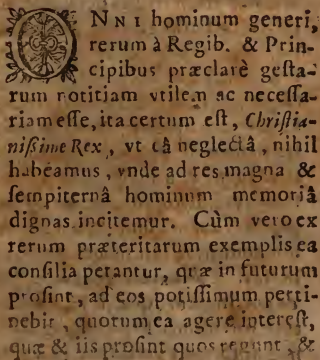 ONNI hominum generi,
rerum à Regib. & Prin-
cipibus præclarè gesta-
rum notitiam vtilem ac necessa-
riam esse, ita certum est, Christia-
nißime Rex, vt eâ neglectâ, nihil
habeamus, vnde ad res magna &
sempiternâ hominum memoriâ
dignas incitemur. Cùm vero ex
rerum præteritarum exemplis ea
consilia petantur, quæ in futurum
prosint, ad eos potissimum perti-
nebit, quorum ea agere interest,
quæ & iis prosint quos regunt, &